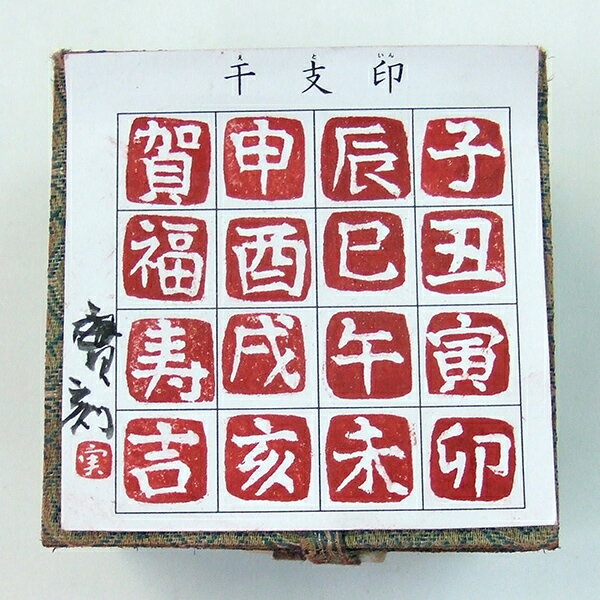 え と いん
干支印
子丑寅卯
辰巳午未
申酉戌亥
賀福寿吉
刻
実